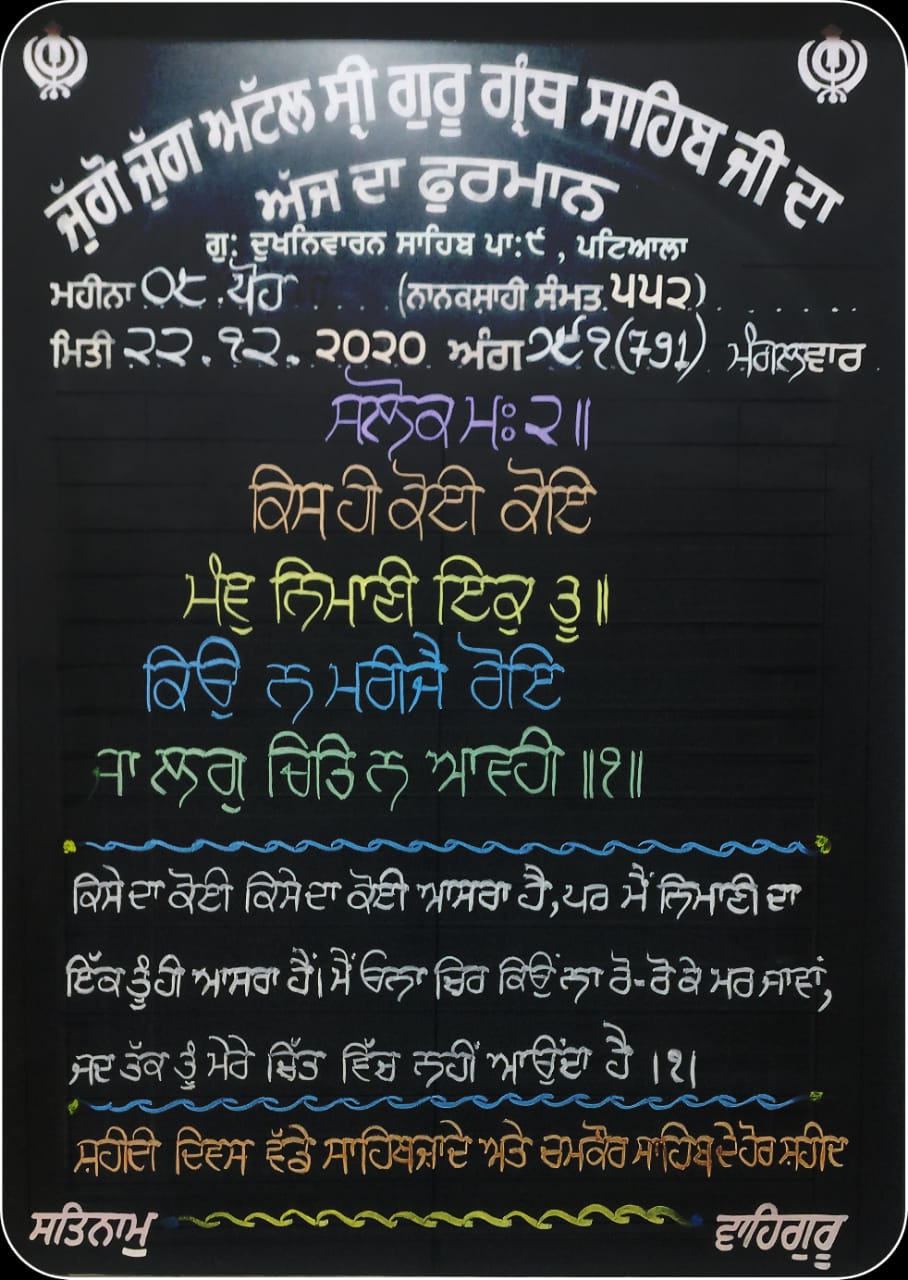 ਜੁੱਗੋ ਜੁੱਗ ਅਟੱਲ ਸ੍ਰੀ ਗੁਰੂ ਗ੍ਰੰਥ ਸਾਹਿਬ ਜੀ ਦਾ
ਅੱਜ ਦਾ ਫੁਰਮਾਨ
ਗੁ: ਦੁਖਨਿਵਾਰਨ ਸਾਹਿਬ ਪਾ:੯, ਪਟਿਆਲਾ
ਮਹੀਨਾ ੦੮ ਪੋਹ (ਨਾਨਕਸ਼ਾਹੀ ਸੰਮਤ ੫੫੨)
ਮਿਤੀ ੨੨.੧੨.੨੦੨੦ ਅੰਗ ੭੯੧(791) ਮੰਗਲਵਾਰ
ਸਲੋਕ ਮਃ ੨॥
ਕਿਸ ਹੀ ਕੋਈ ਕੋਇ
ਮੰਞੁ ਨਿਮਾਣੀ ਇਕੁ ਤੂ॥
ਕਿਉ ਨ ਮਰੀਜੈ ਰੋਇ
ਜਾ ਲਗੁ ਚਿਤਿ ਨ ਆਵਹੀ ॥੧॥
ਕਿਸੇ ਦਾ ਕੋਈ ਕਿਸੇ ਦਾ ਕੋਈ ਆਸਰਾ ਹੈ, ਪਰ ਮੈਂ ਨਿਮਾਣੀ ਦਾ
ਇੱਕ ਤੂੰ ਹੀ ਆਸਰਾ ਹੈਂ। ਮੈਂ ਓਨਾ ਚਿਰ ਕਿਉਂ ਨਾ ਰੋ-ਰੋ ਕੇ ਮਰ ਜਾਵਾਂ,
ਜਦ ਤੱਕ ਤੂੰ ਮੇਰੇ ਚਿੱਤ ਵਿੱਚ ਨਹੀਂ ਆਉਂਦਾ ਹੈ ।੧।
ਸ਼ਹੀਦੀ ਦਿਵਸ ਵੱਡੇ ਸਾਹਿਬਜ਼ਾਦੇ ਅਤੇ ਚਮਕੌਰ ਸਾਹਿਬ ਦੇ ਹੋਰ ਸ਼ਹੀਦ
ਸਤਿਨਾਮੁ ਵਾਹਿਗੁਰੂ